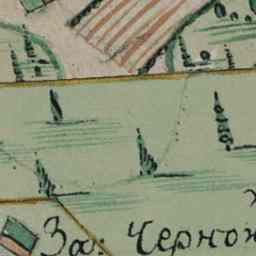 За: Черно